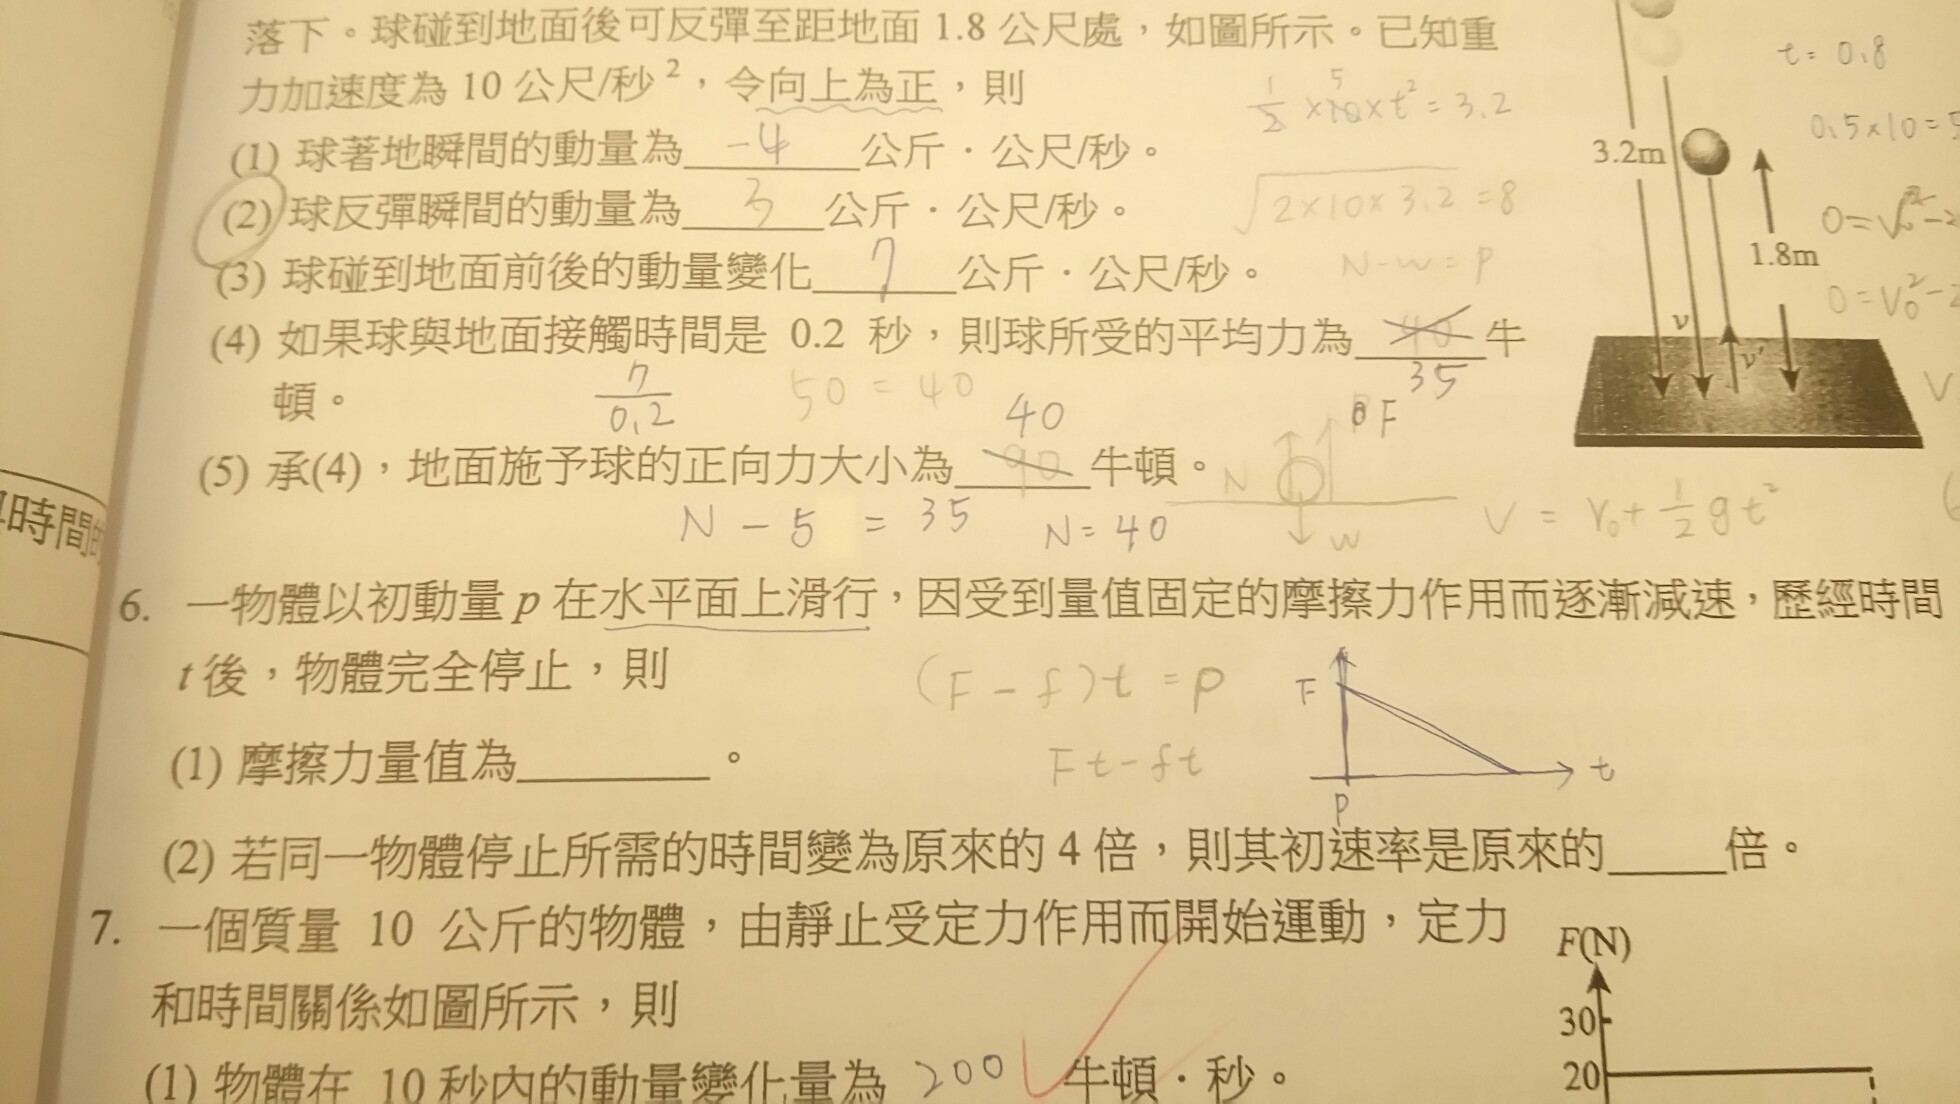 落下。球碰到地面後可反彈至距地面 1.8 公尺處，如圖所示。已知重
力加速度為 10 公尺/秒²，令向上為正，則
(1) 球著地瞬間的動量為 -4 公斤．公尺/秒。
(2) 球反彈瞬間的動量為 3 公斤．公尺/秒。
(3) 球碰到地面前後的動量變化 7 公斤．公尺/秒。
(4) 如果球與地面接觸時間是 0.2 秒，則球所受的平均力為 40 牛
35
頓。
7/0.2
50 = 40
40
(5) 承(4)，地面施予球的正向力大小為 90 牛頓。
N - 5 = 35 N = 40
t = 0.8
1/2 × 10 × t² = 3.2
5
√2×10×3.2 = 8
N-w = P
3.2m
1.8m
v
v'
F
N
W
V = V₀ + 1/2 g t²
時間
6. 一物體以初動量 p 在水平面上滑行，因受到量值固定的摩擦力作用而逐漸減速，歷經時間
t 後，物體完全停止，則
(F - f)t = p
(1) 摩擦力量值為 。
Ft - ft
F
t
P
(2) 若同一物體停止所需的時間變為原來的 4 倍，則其初速率是原來的 倍。
7. 一個質量 10 公斤的物體，由靜止受定力作用而開始運動，定力
和時間關係如圖所示，則
(1) 物體在 10 秒內的動量變化量為 200 牛頓．秒。
F(N)
30
20